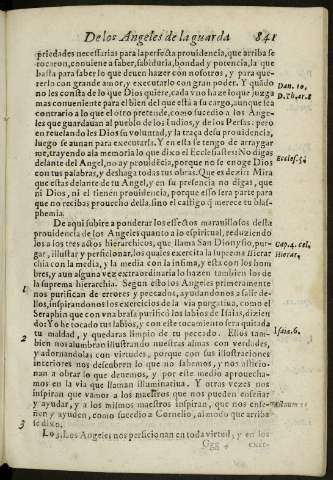 De los Angeles de la guarda 841
priedades necessarias para la perfecta prouidencia, que arriba se
tocaron, conuiene a saber, sabiduria, bondad y potencia, la que
basta para saber lo que deuen hazer con nosotros, y para que-
rerlo con grande amor, y executarlo con gran poder. Y quãdo
no les consta de lo que Dios quiere, cada vno haze lo que juzga
mas conueniente para el bien del que està a su cargo, aunque sea
contrario a lo que el otro pretende, como sucedio a los Ange-
les que guardauan al pueblo de los Iudios, y de los Persas: pero
en reuelandoles Dios su voluntad, y la traça de su prouidencia,
luego se aunan para executarla. Y en esta se tengo de arraygar
me, trayendo a la memoria lo que dixo el Ecclesiastes: No digas
delante del Angel, no ay prouidécia, porque no se enoge Dios
con tus palabras, y deshaga todas tus obras. Que es dezir: Mira
que estas delante de tu Angel, y en su presencia no digas, que
ni Dios, ni el tienen prouidencia, porque esso sera parte para
que no recibas prouecho della, sino el castigo q̃ merece tu blas-
phemia.
Dan. 10.
D. Th. ar. 8
Eccles. 5.
De aqui subire a ponderar los effectos marauillosos desta
prouidencia de los Angeles quanto a lo espiritual, reduziendo
los a los tres actos hierarchicos, que llama San Dionysio, pur-
gar, illustrar y perficionar, los quales exercita la suprema Hierar
chia con la media, y la media con la infima, y esta con los hom-
bres, y aun alguna vez extraordinaria lo hazen tambien los de
la suprema hierarchia. Segun esto los Angeles primeramente
nos purifican de errores y pecados, ayudandonos a salir de-
llos, inspirandonos los exercicios de la via purgatiua, como el
Seraphin que con vna brasa purificò los labios de Isaias, dizien
do: Yo he tocado tus labios, y con este tocamiento sera quitada
tu maldad, y quedaras limpio de tu pecado. Ellos tam-
bien nos alumbran illustrando nuestras almas con verdades,
y adornandolas con virtudes, porque con sus illustraciones
interiores nos descubren lo que no sabemos, y nos afficio-
nan a obrar lo que deuemos, y por este medio aprouecha-
mos en la via que llaman illuminatiua. Y otras vezes nos
inspiran que vamos a los maestros que nos pueden enseñar
y ayudar, y a los mismos maestros inspiran, que nos ense-
ñen y ayuden, como sucedio a Cornelio, al modo que arriba
se dixo.
Cap. 4. cel.
Hierar.
1
Isaiæ. 6.
2
3
Lo 3. Los Angeles nos perficionan en toda virtud, y en los
Ggg
exer-